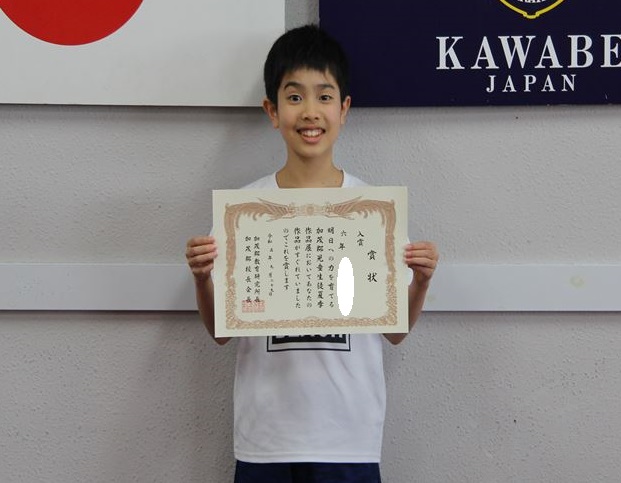 KAWABE
JAPAN
賞状
入賞
六年
明日への力を育てる
加茂郡児童生徒夏季
作品展においてあなたの
作品がすぐれていました
のでこれを賞します
令和五年九月二十九日
加茂郡教育研究所長
加茂郡校長会長